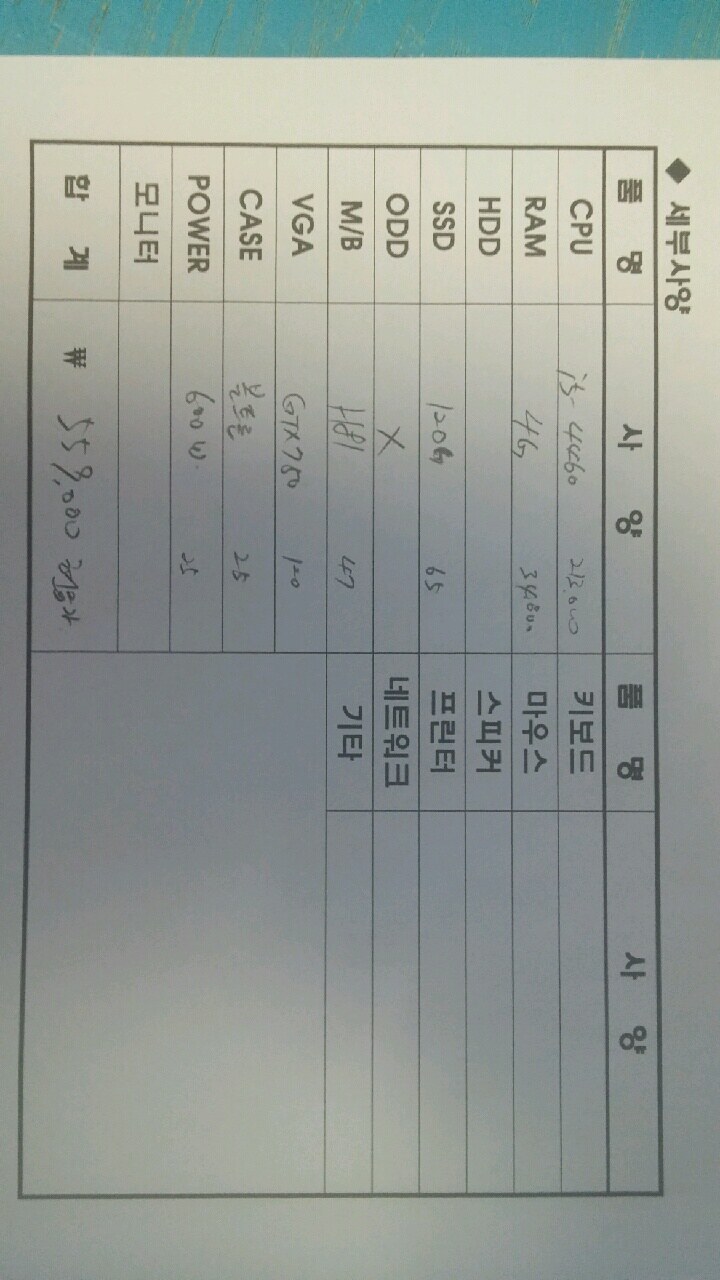 ◆ 세부사양
품 명 사 양 품 명 사 양
CPU i5-4460 213,000 키보드
RAM 4G 34,800 마우스
HDD 스피커
SSD 120G 65 프린터
ODD X 네트워크
M/B H81 47 기타
VGA GTX750 120
CASE 25
POWER 600W. 25
모니터
합 계 ₩ 559,000